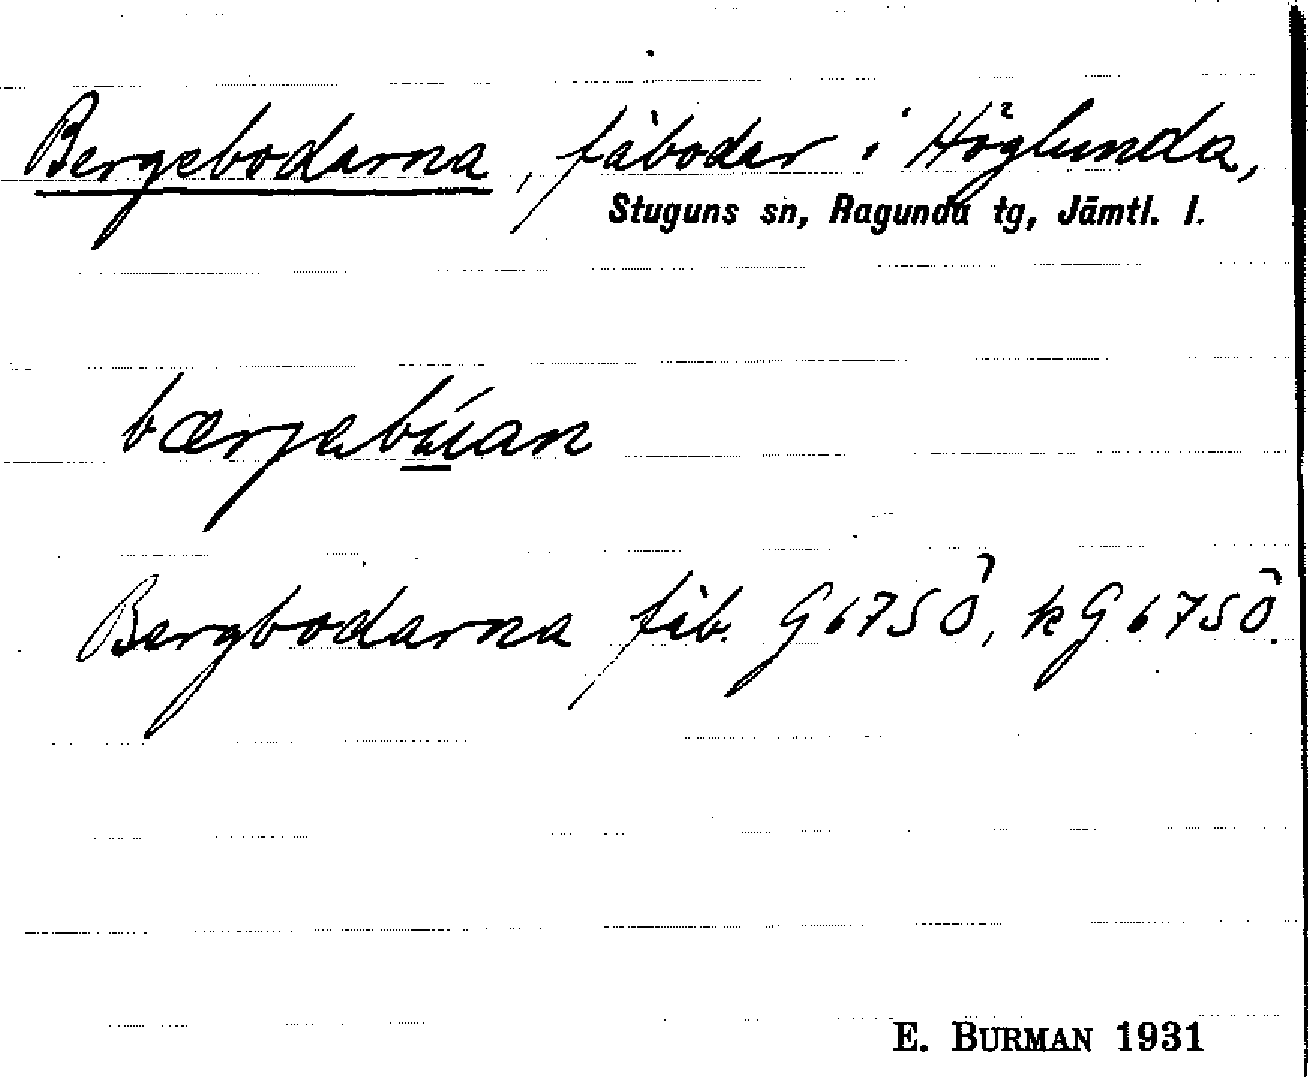 Bergebodarna, fäbodar i Höglunda,
Stuguns sn, Ragunda tg, Jämtl. l.
bærjabúan
Bergbodarna fäb. G67SÖ, kG67SÖ.
E. BURMAN 1931